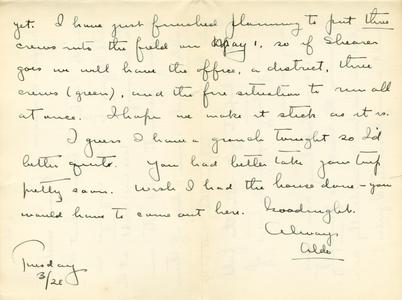 yet. I have just finished planning to put three
crews into the field on May 1, so if Shearer
goes we will have the office, a district, three
crews (green), and the fire situation to run all
at once. I hope we make it stick as it is.
I guess I have a grouch tonight so I'd
better quit. You had better take your trip
pretty soon. Wish I had the house done - you
would have to come out here. Goodnight.
Always
Aldo
Tuesday
3/28